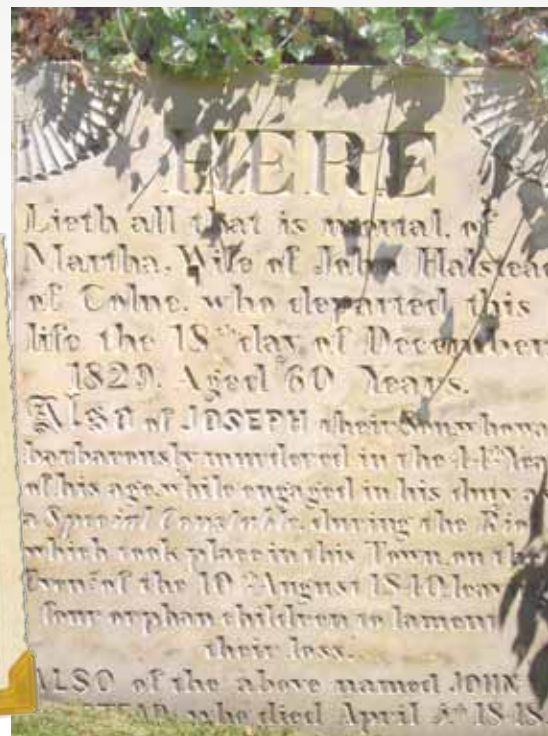 HERE
Lieth all that is mortal, of
Martha, Wife of John Halstead
of Colne, who departed this
life the 18th day of December
1829, Aged 60 Years.
Also of JOSEPH their Son, who wa
barbarously murdered in the 44th Yea
of his age, while engaged in his duty as
a Special Constable, during the Rio
which took place in this Town, on the
Even.g of the 10th August 1840, leav
four orphan children to lament
their loss.
ALSO of the above named JOHN
STEAD, who died April 4th 1848